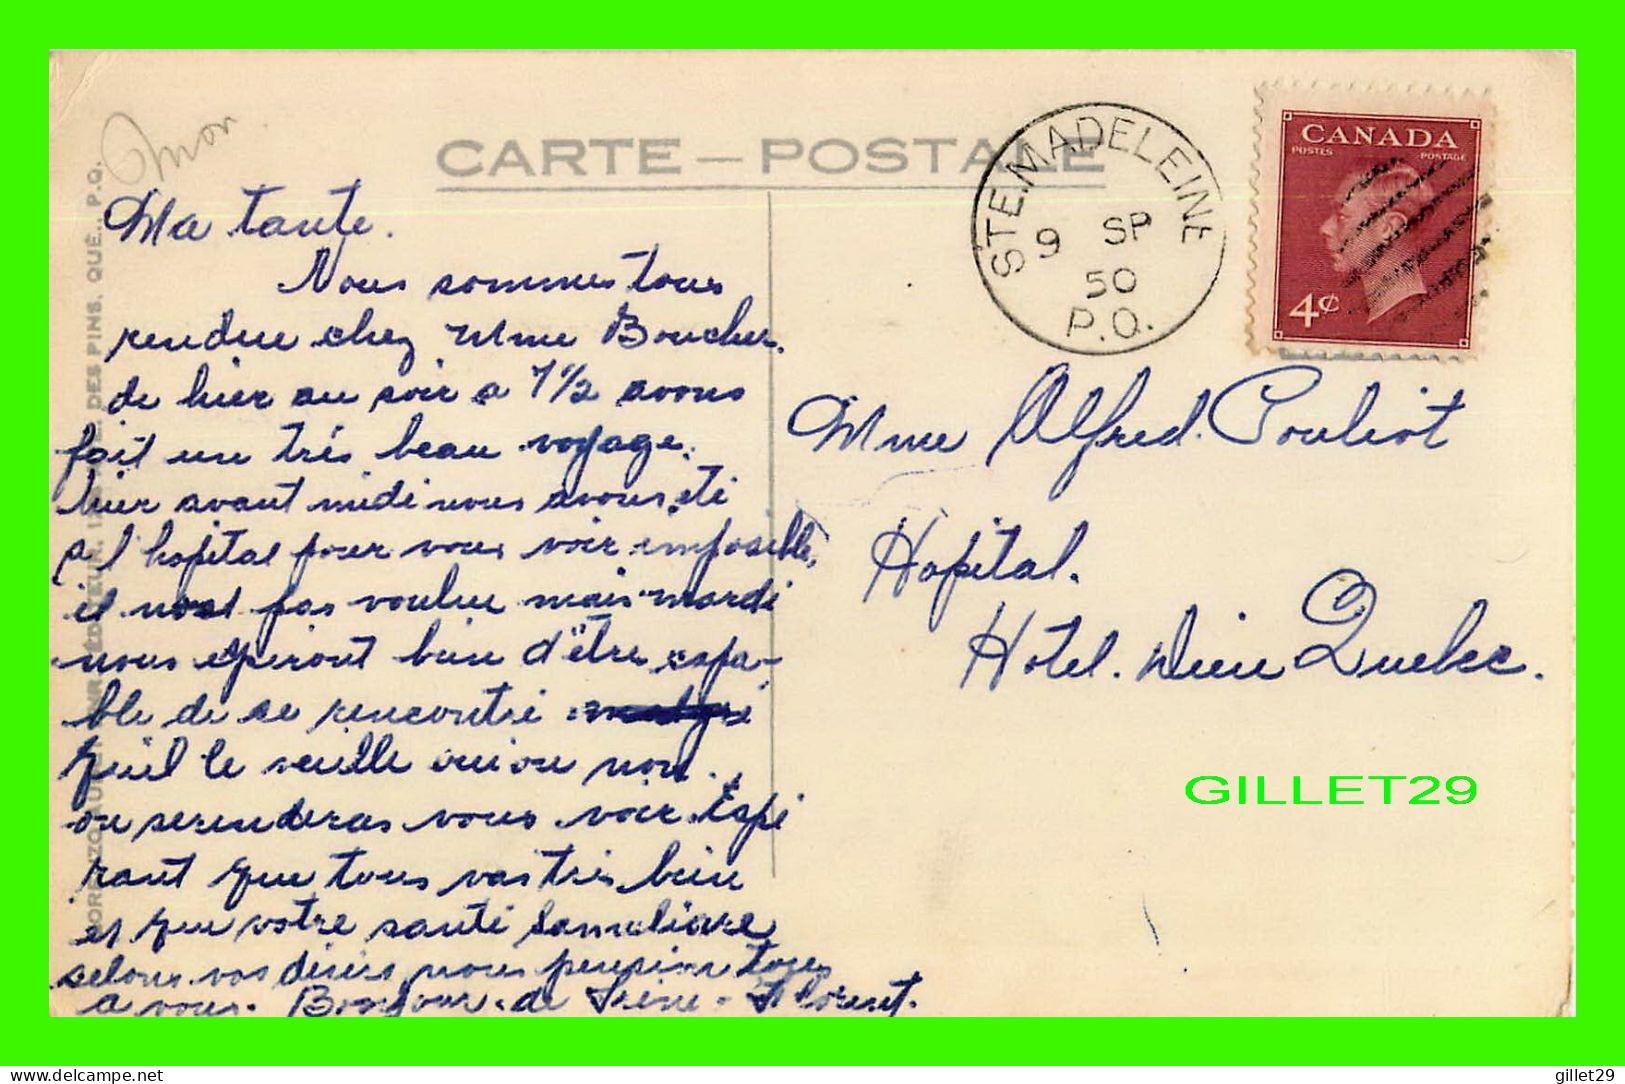 CARTE – POSTALE
STE. MADELEINE
9 SP
50
P.Q.
CANADA
POSTES POSTAGE
4¢
Ma tante.
Nous sommes tous
rendue chez Mme Boucher.
de hier au soir a 7 1/2 avons
fait un très beau voyage.
hier avant midi nous avons été
a l'hopital pour vous voir imposible,
il pas voulue mais mardi
nous bien d'être capa-
ble de se rencontré
qu'il le veille oui ou non.
on serenderas vous voir. Espé
rant que tous vas très bien
et que votre santé sameliore
selons vos désirs nous pensons tous
a vous. Bonjour. de Irène - Florent.
Mme Alfred. Pouliot
Hopital.
Hotel. Dieu Quebec.
GILLET29
DES PINS, QUÉ., P.Q.
delcampe.net
gillet29